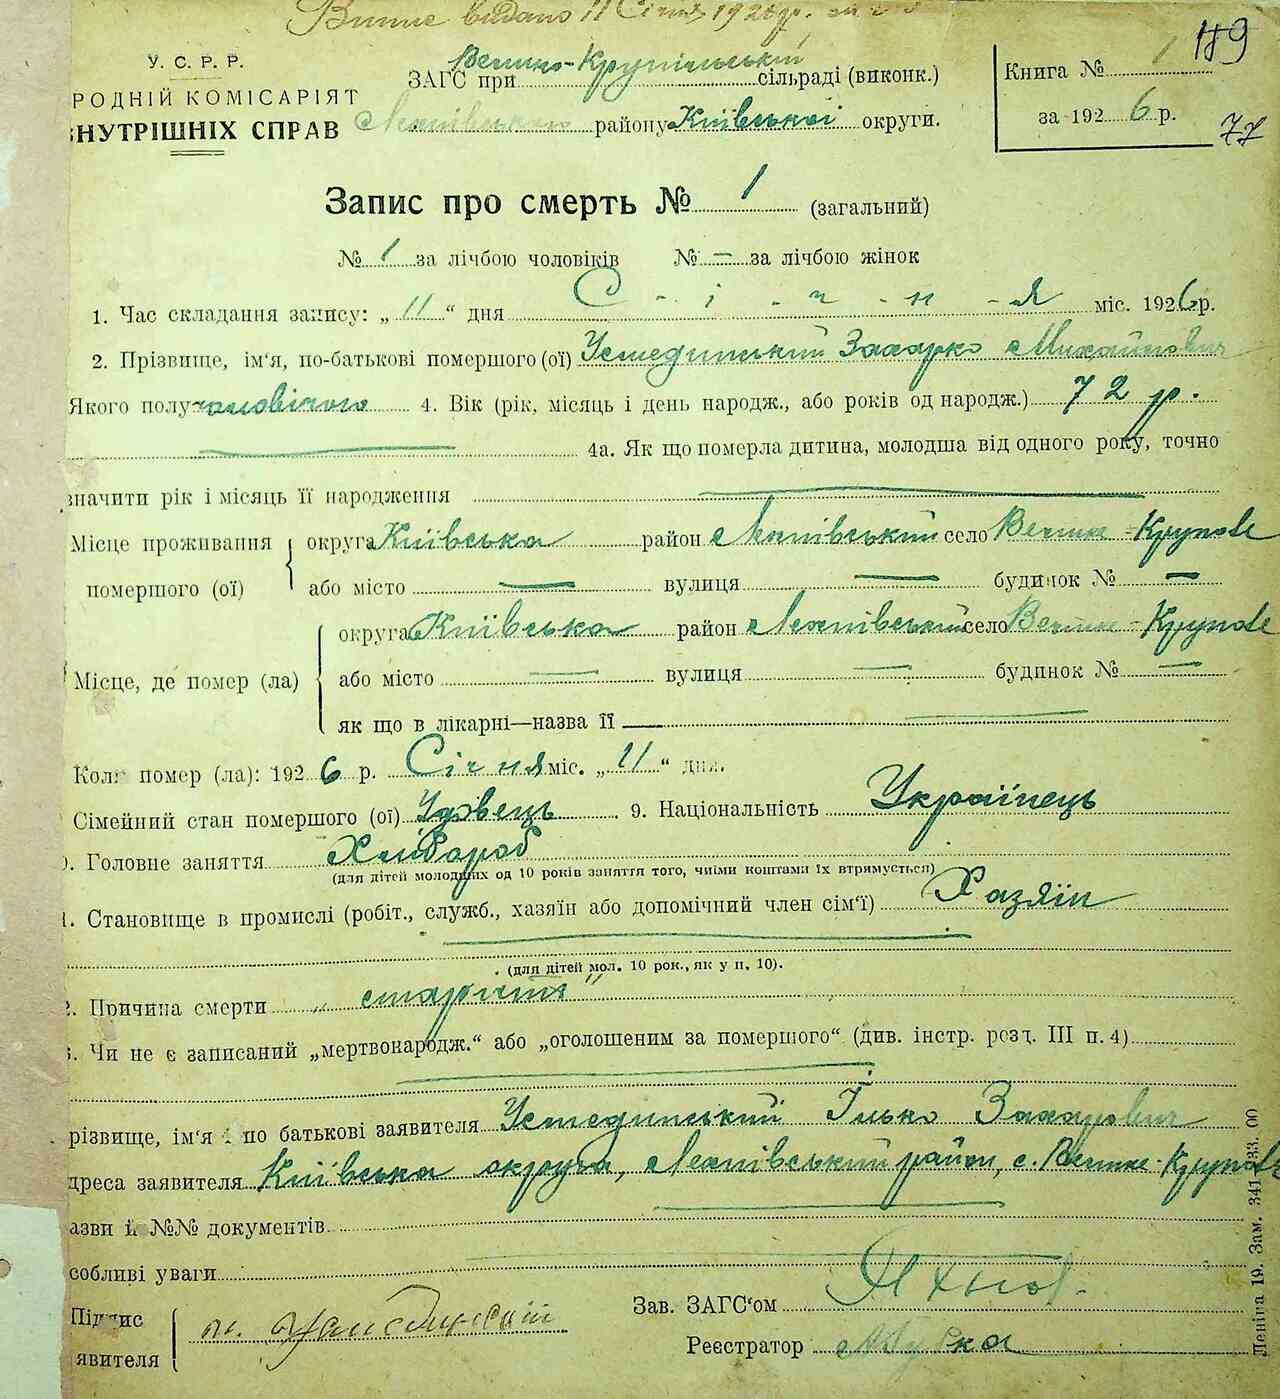 Випис видано 11 Січня 1926 р.
189
У. С. Р. Р.
РОДНІЙ КОМІСАРІЯТ
НУТРІШНІХ СПРАВ
ЗАГС при Велико-Крупільській сільраді (виконк.)
району Київської округи.
Книга № 1
за 1926 р.
77
Запис про смерть № 1 (загальний)
№ 1 за лічбою чоловіків № — за лічбою жінок
1. Час складання запису: „ 11 “ дня С - і - ч - н - я міс. 1926 р.
2. Прізвище, ім'я, по-батькові помершого (ої) Захарко Михайлович
Якого полу чоловічого 4. Вік (рік, місяць і день народж., або років од народж.) 72 р.
4а. Як що померла дитина, молодша від одного року, точно
значити рік і місяць її народження
Місце проживання округа Київська район село Велике-Крупове
помершого (ої) або місто — вулиця — будинок № —
округа Київська район село Велике-Крупове
Місце, де помер (ла) або місто — вулиця — будинок № —
як що в лікарні—назва її —
Коли помер (ла): 1926 р. Січня міс. „ 11 “ дня.
Сімейний стан помершого (ої) Удівець 9. Національність Українець
). Головне заняття Хлібороб
(для дітей молодших од 10 років заняття того, чиїми коштами їх втримується)
1. Становище в промислі (робіт., служб., хазяїн або допомічний член сім'ї) Хазяїн
(для дітей мол. 10 рок., як у п. 10).
2. Причина смерти „ старість “
3. Чи не є записаний „мертвонародж.“ або „оголошеним за помершого“ (див. інстр. розд. III п. 4)
різвище, ім'я і по батькові заявителя Ілько Захарович
дреса заявителя Київська округа, район, с. Велике-Крупове
азви й №№ документів
собливі уваги
Зав. ЗАГС'ом
Підпис
явителя
Реєстратор
Леніна 19. Зам. 341-33. 00